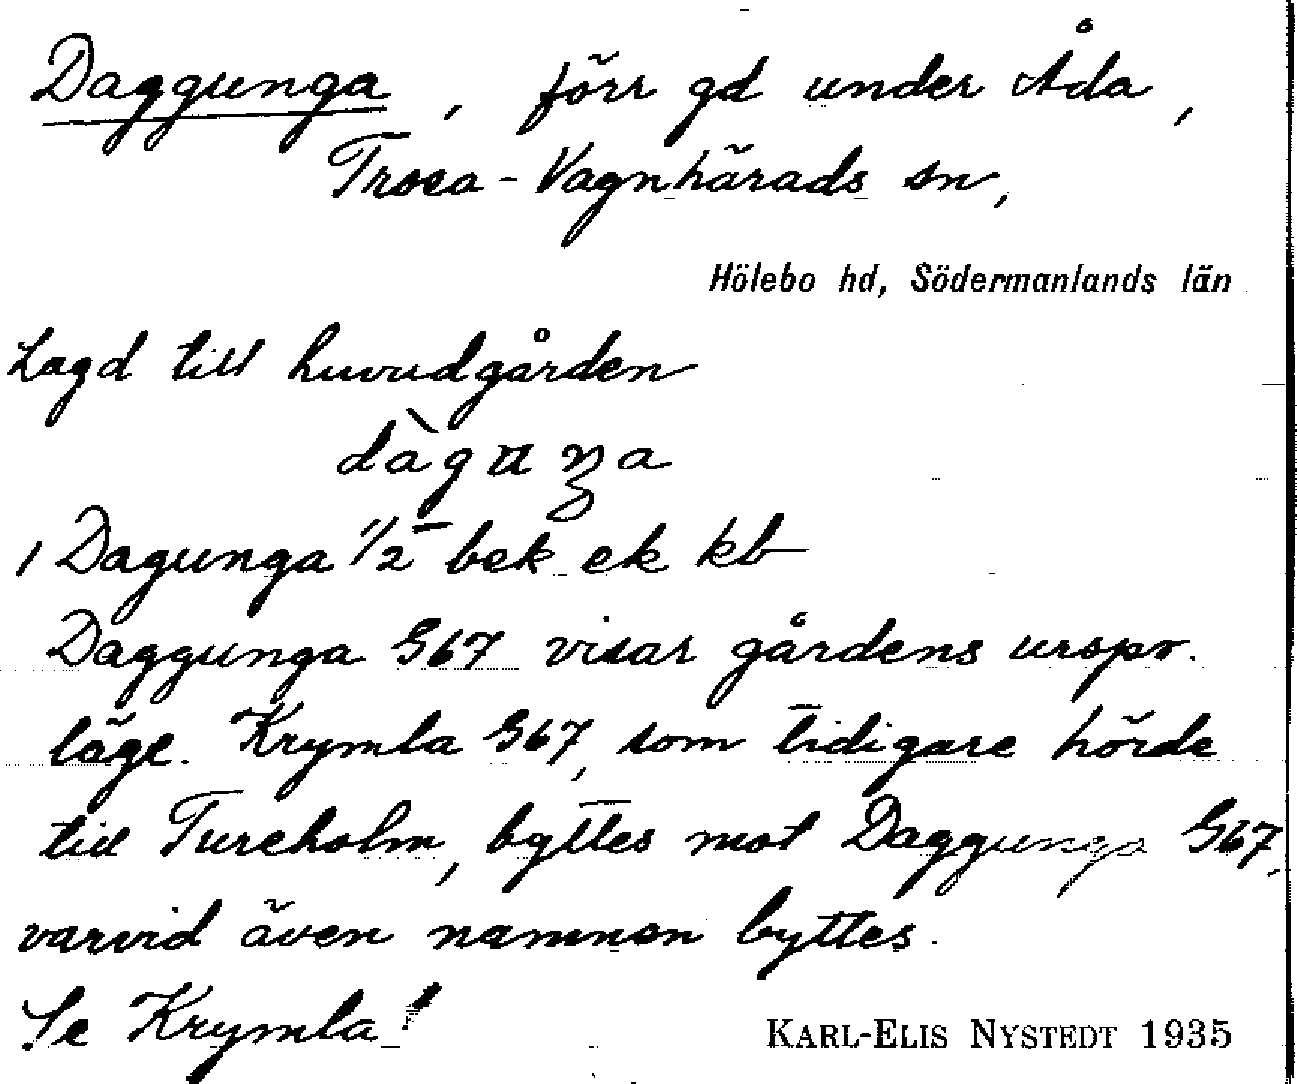 Daggunga, förr gd under Åda,
Trosa-Vagnhärads sn,
Hölebo hd, Södermanlands län
Lagd till huvudgården
dàgunga
1 Dagunga 1/2 bek ek kb
Daggunga G67 visar gårdens urspr.
läge. Krymla G67, som tidigare hörde
till Tureholm, byttes mot Daggunga G67,
varvid även namnen byttes.
Se Krymla!
KARL-ELIS NYSTEDT 1935